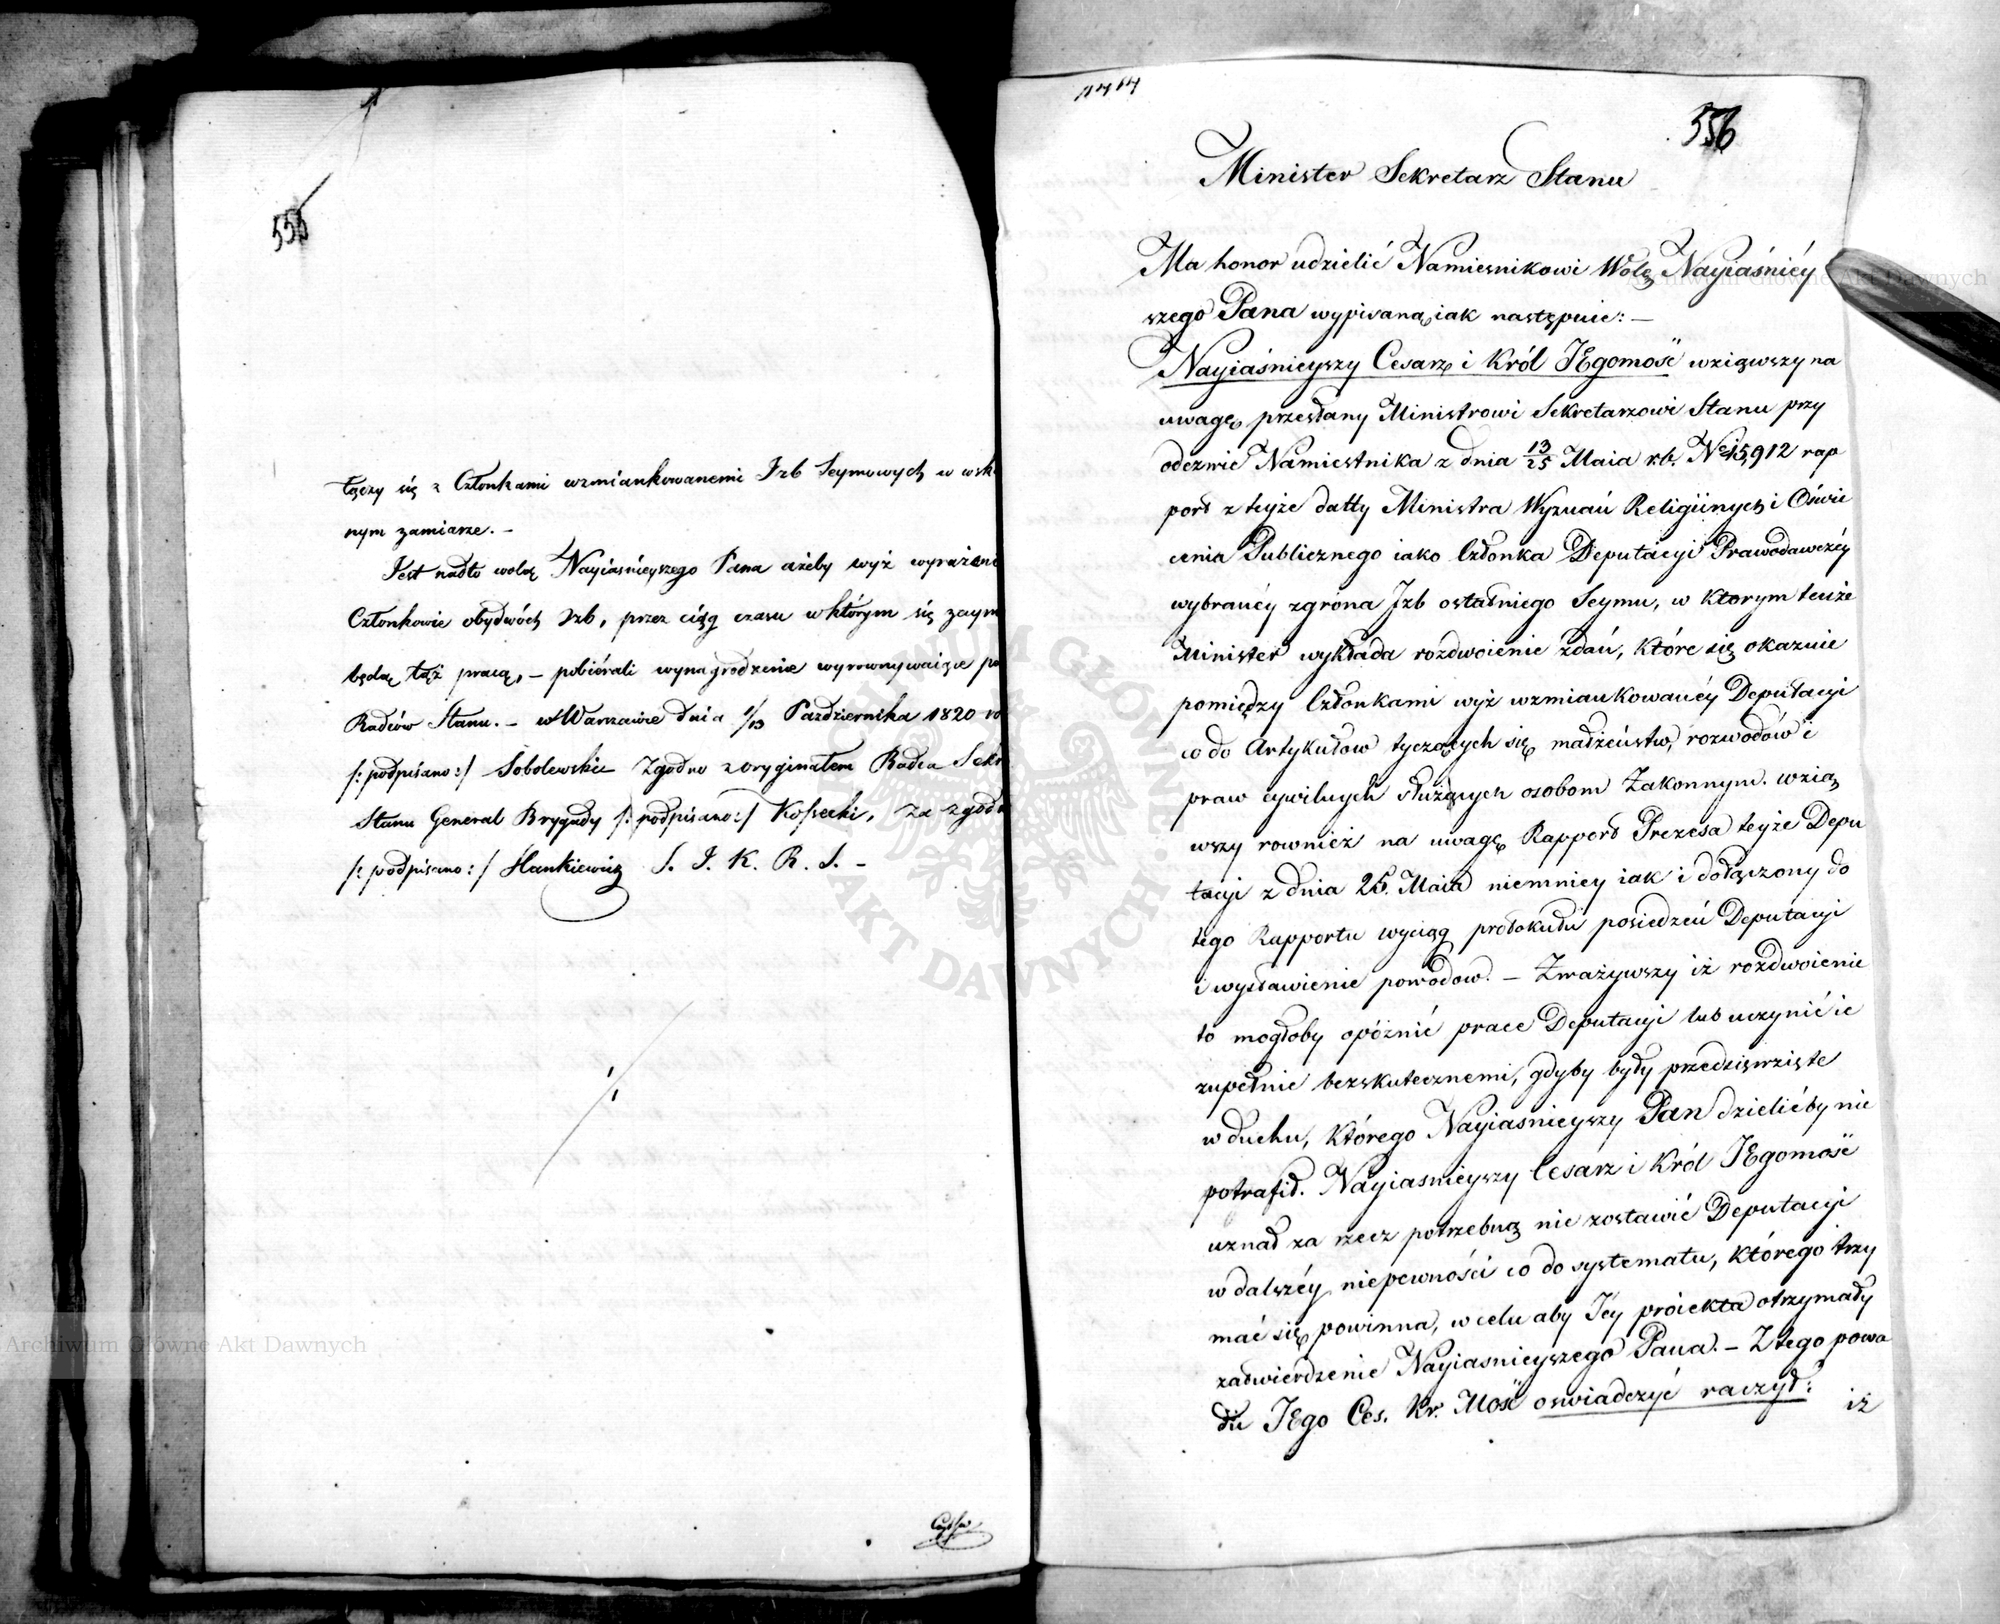 555
łączy się z Członkami wzmiankowanemi Izb Seymowych w wsk
nym zamiarze. –
Jest nadto wolą Nayiaśnieyszego Pana ażeby wyż wyrażeni
Członkowie obydwóch Izb, przez ciąg czasu w którym się zaym
będą tąż pracą, – pobiérali wynagrodzenie wyrownywaiące p
Radców Stanu. – w Warszawie dnia 1/13 Października 1820 ro
/: podpisano :/ Sobolewski Zgodno z oryginałem Radca Sekr
Stanu Generał Brygady /: podpisano :/ Kossecki, Za zgod
/: podpisano :/ Hankiewicz S. J. K. R. S. –
556
Minister Sekretarz Stanu
Ma honor udzielić Namiesnikowi Wolę Nayiaśniéy
szego Pana wypisaną iak następuie: –
Nayiaśnieyszy Cesarz i Król JEgomość wziąwszy na
uwagę przesłany Ministrowi Sekretarzowi Stanu przy
odezwie Namiestnika z dnia 13/25 Maia r.b. No 15,912 rap
port z teyże datty Ministra Wyznań Religiinych i Oświe
cenia Publicznego iako Członka Deputacyi Prawodawczéy
wybranéy z grona Izb ostatniego Seymu, w ktorym tenże
Minister wykłada rozdwoienie zdań, które się okazuie
pomiędzy Członkami wyż wzmiankowanéy Deputacyi
co do Artykułow tyczących się małżeństw, rozwodów i
praw cywilnych służących osobom Zakonnym. wzią
wszy rownież na uwagę Rapport Prezesa teyże Depu
tacyi z dnia 25. Maia niemniey iak i dołączony do
tego Rapportu wyciąg protokułu posiedzeń Deputacyi
i wystawienie powodow. – Zważywszy iż rozdwoienie
to mogłoby opóźnić prace Deputacyi lub uczynić ie
zupełnie bezskutecznemi, gdyby były przedsięwzięte
w duchu, którego Nayiasnieyszy Pan dzielićby nie
potrafił. Nayiasnieyszy Cesarz i Król JEgomość
uznał za rzecz potrzebną nie zostawić Deputacyi
w dalszéy niepewności co do systematu, którego trzy
mać się powinna, w celu aby Jéy proiekta otrzymały
zatwierdzenie Nayiasnieyszego Pana. – Z tego powo
du JEgo Ces. Kr. Mość oswiadczyć raczył: iż
Archiwum Główne Akt Dawnych
Archiwum Główne Akt Dawnych
ARCHIWUM GŁÓWNE AKT DAWNYCH